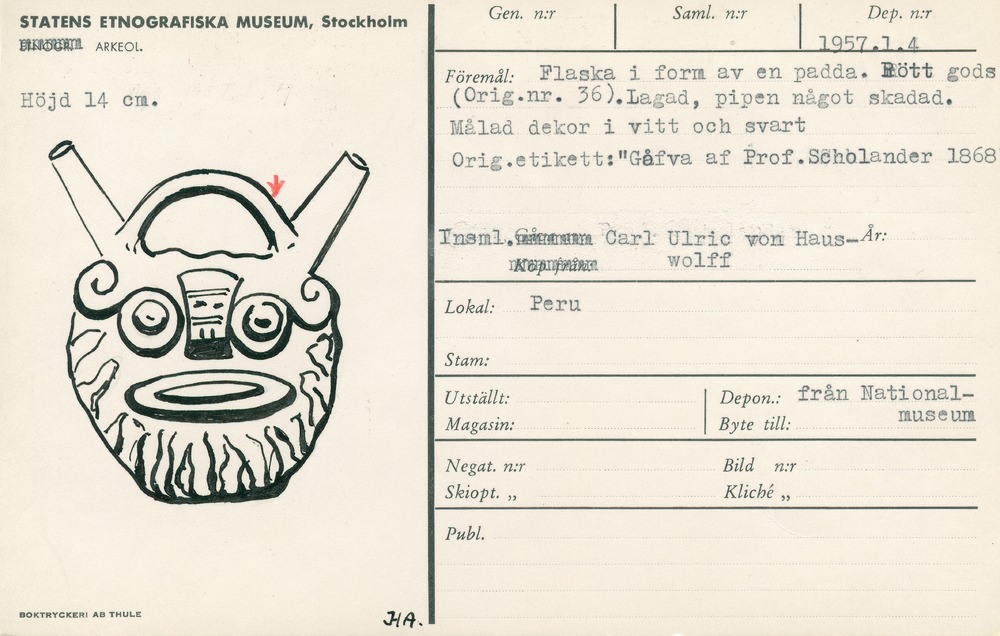 STATENS ETNOGRAFISKA MUSEUM, Stockholm
ETNOGR. ARKEOL.
Höjd 14 cm.
BOKTRYCKERI AB THULE
HA.
Gen. n:r
Saml. n:r
Dep. n:r
1957.1.4
Föremål: Flaska i form av en padda. Rött gods
(Orig.nr. 36).Lagad, pipen något skadad.
Målad dekor i vitt och svart
Orig.etikett:"Gåfva af Prof.Scholander 1868
Insml. Gåva från Carl Ulric von Haus- År:
Köp från wolff
Lokal: Peru
Stam:
Utställt:
Depon.: från National-
Magasin:
Byte till: museum
Negat. n:r
Bild n:r
Skiopt. „
Kliché „
Publ.